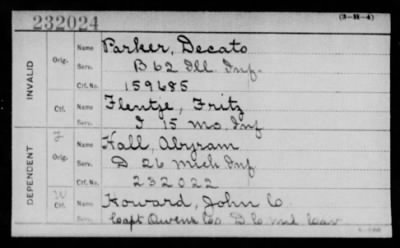 232024
(3-H-4)
INVALID
Orig.
Name Parker, Decato
Serv. B 62 Ill Inf.
Ctf. No. 159685
Ctf.
Name Flentje, Fritz
Serv. I 15 Mo Inf
DEPENDENT
Orig.
Name Hall, Abyram
Serv. D 26 Mich Inf
Ctf. No. 232022
W
Ctf.
Name Howard, John C
Serv. Capt Owens Co D C mil Cav